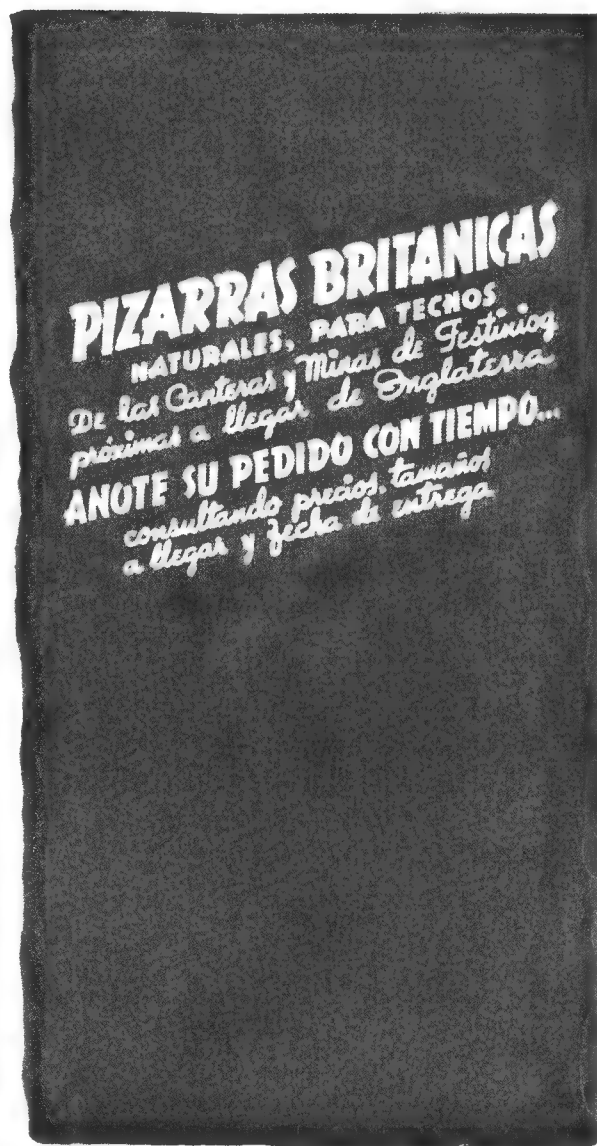 PIZARRAS BRITANICAS
NATURALES, PARA TECHOS
De las Canteras y Minas de Festiniog
próximas a llegar de Inglaterra
ANOTE SU PEDIDO CON TIEMPO...
consultando precios, tamaños
a llegar y fecha de entrega